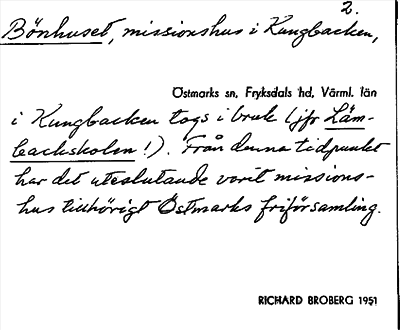 2.
Bönhuset, missionshus i Kungbacken,
Östmarks sn, Fryksdals hd, Värml. län
i Kungbacken togs i bruk (jfr Läm-
backskolen!). Från denna tidpunkt
har det uteslutande varit missions-
hus tillhörigt Östmarks friförsamling.
RICHARD BROBERG 1951